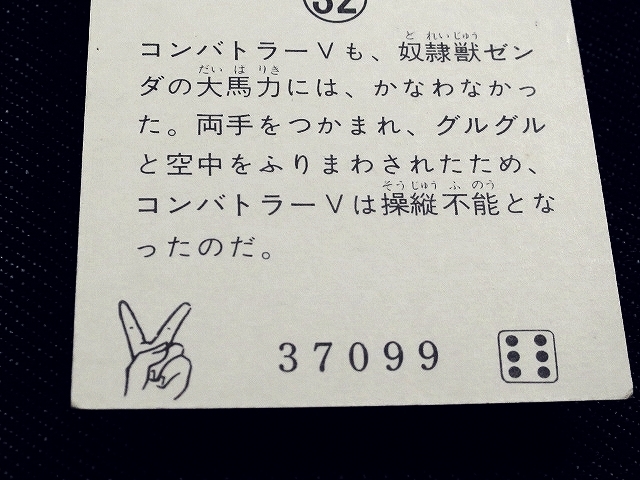 32
コンバトラーVも、奴隷獣ゼン
ダの大馬力には、かなわなかっ
た。両手をつかまれ、グルグル
と空中をふりまわされたため、
コンバトラーVは操縦不能とな
ったのだ。
37099